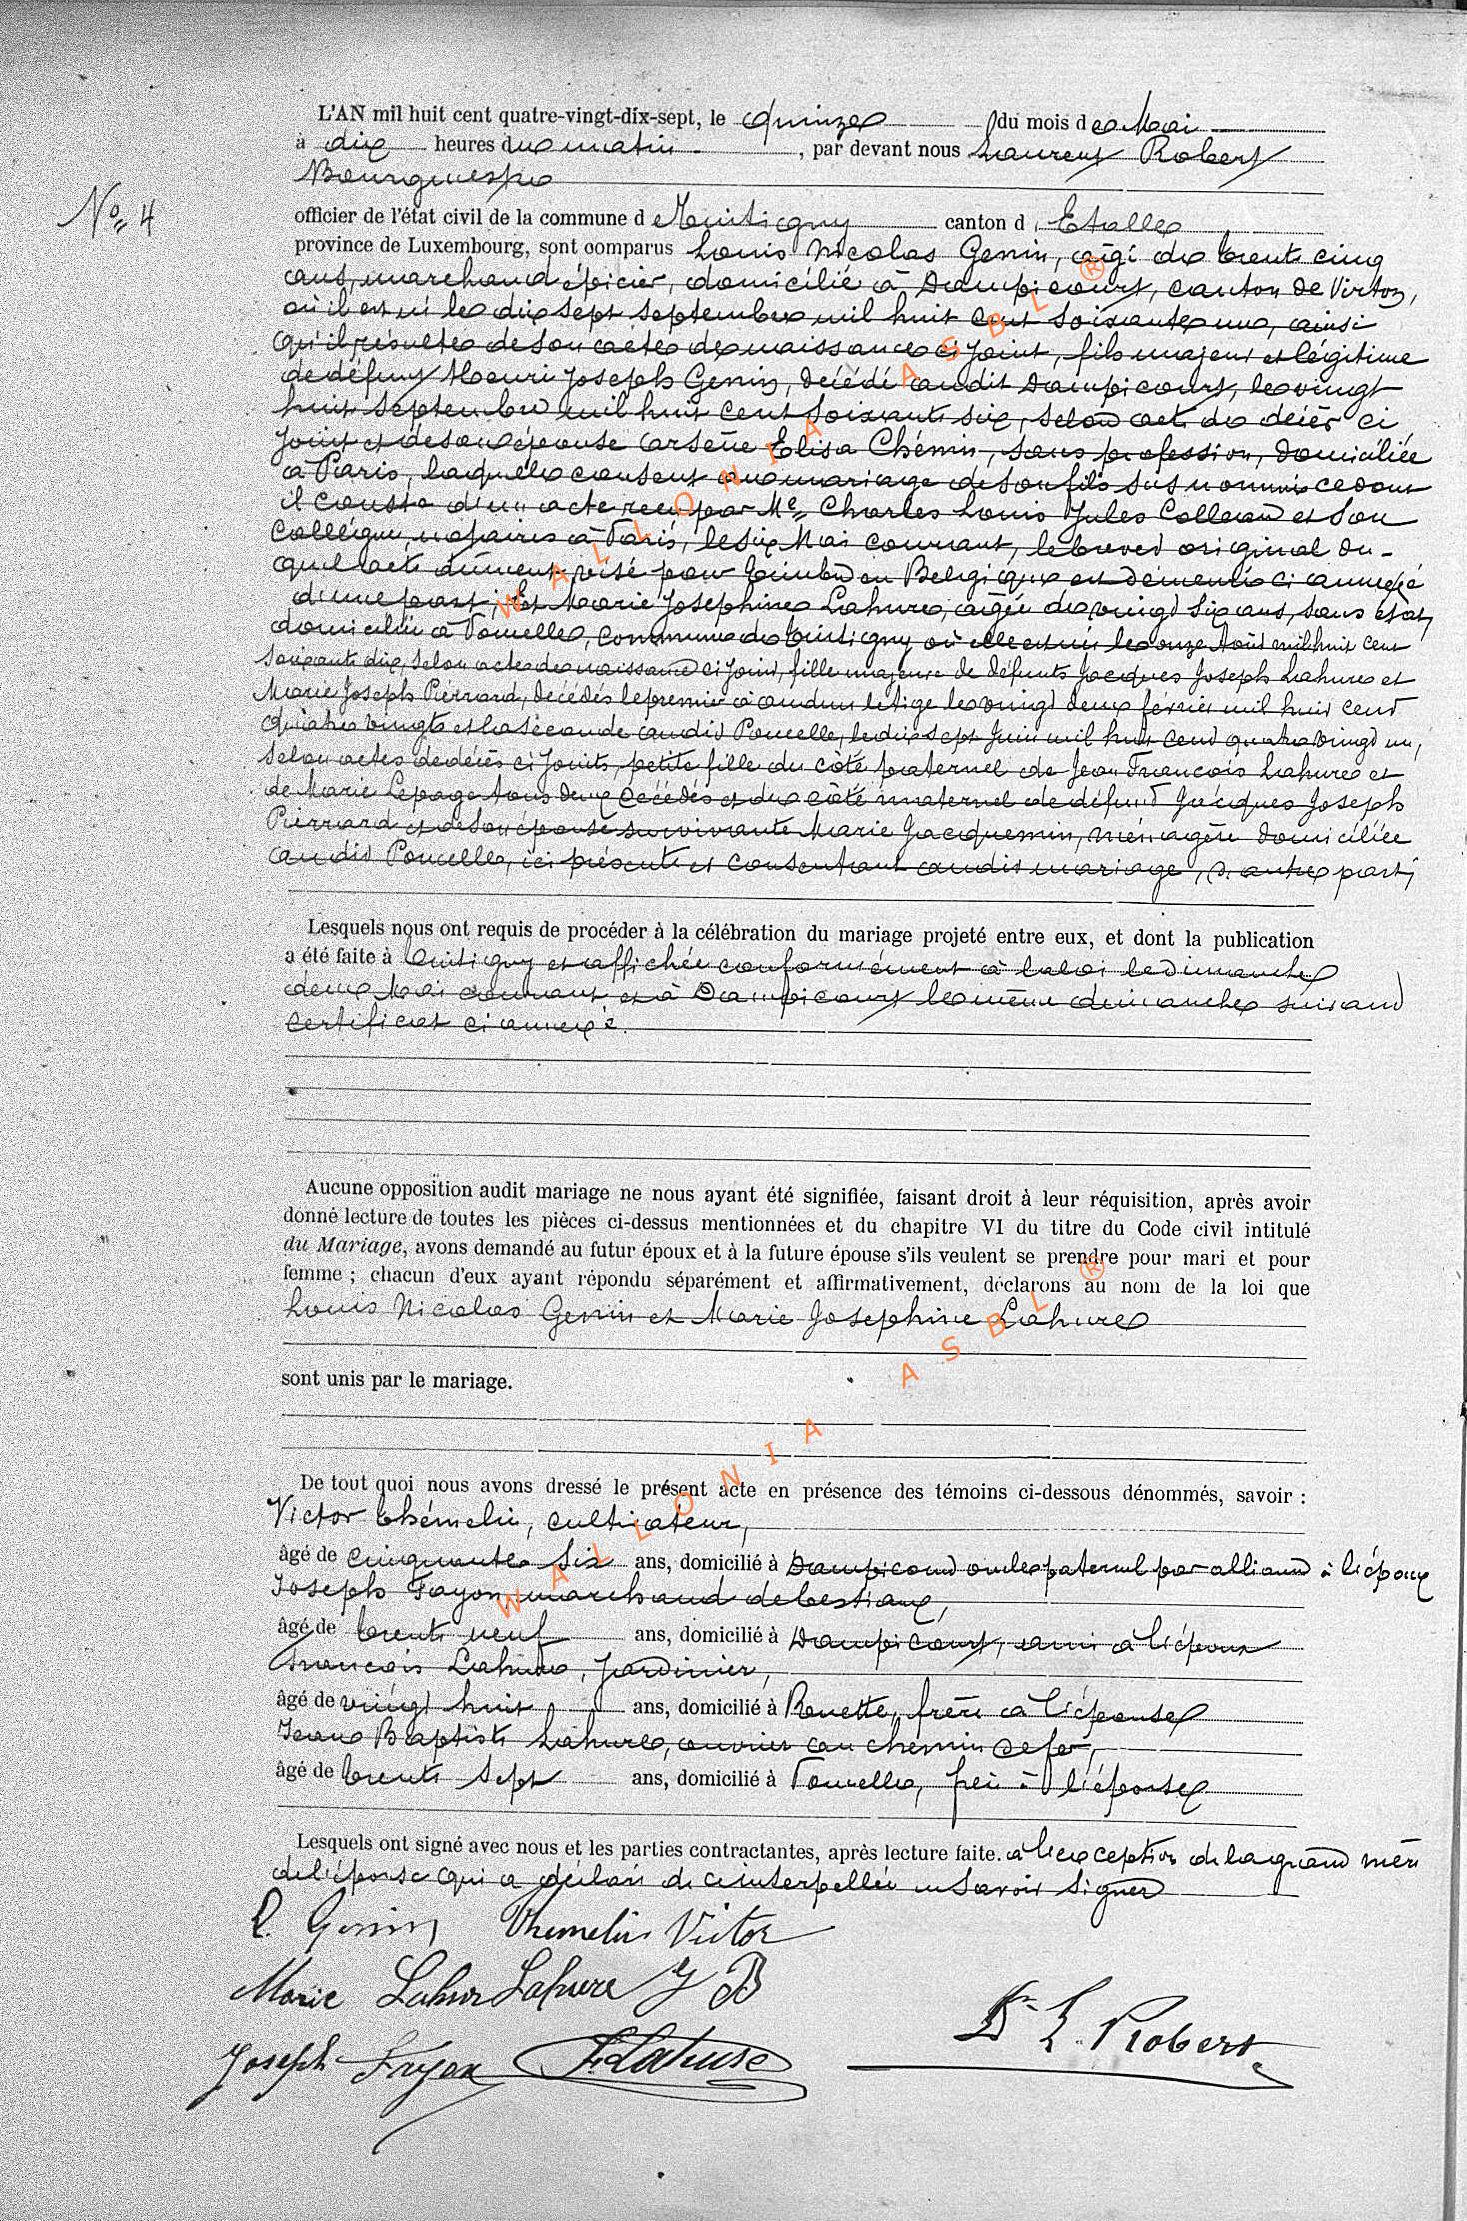 L'AN mil huit cent quatre-vingt-dix-sept, le quinze du mois de Mai
à dix heures du matin, par devant nous Laurent Robert
Bourgmestre
No 4
officier de l'état civil de la commune d Tintigny canton d Etalle
province de Luxembourg, sont comparus Louis Nicolas Genin, âgé de trente cinq
ans, marchand épicier, domicilié à Dampicourt, canton de Virton,
où il est né le dix sept septembre mil huit cent soixante un, ainsi
qu'il résulte de son acte de naissance ci joint, fils majeur et légitime
de défunt Henri Joseph Genin, décédé audit Dampicourt, le vingt
huit septembre mil huit cent soixante six, selon acte de décès ci
joint et de son épouse Arsène Elisa Chémin, sans profession, domiciliée
à Paris, laquelle consent au mariage de son fils sus nommé comme
il conste d'un acte reçu par Me Charles Louis Jules et son
Collègue, notaires à Paris, le six Mai courant, le brevet original du-
quel acte dûment visé pour timbre en Belgique est demeuré ci annexé
d'une part; Et Marie Joséphine Lahure, âgée de vingt six ans, sans état,
domiciliée à Poncelle, commune de Tintigny où elle est née le onze Août mil huit cent
soixante dix, selon acte de naissance ci joint, fille majeure de défunts Jacques Joseph Lahure et
Marie Joseph Piérrard, décédés le premier à Audun le Tige le vingt deux février mil huit cent
quatre vingts et la seconde audit Poncelle, le dix sept Juin mil huit cent quatre vingt un,
selon actes de décès ci joints, petite fille du côté paternel de Jean François Lahure et
de Marie Lepage tous deux décédés et du côté maternel de défunt Jacques Joseph
Piérrard et de son épouse survivante Marie Jacquemin, ménagère domiciliée
audit Poncelle, ici présente et consentant audit mariage, d'autre part;
Lesquels nous ont requis de procéder à la célébration du mariage projeté entre eux, et dont la publication
a été faite à Tintigny et affichée conformément à la loi le dimanche
deux Mai courant et à Dampicourt le même dimanche suivant
certificat ci annexé.
Aucune opposition audit mariage ne nous ayant été signifiée, faisant droit à leur réquisition, après avoir
donné lecture de toutes les pièces ci-dessus mentionnées et du chapitre VI du titre du Code civil intitulé
du Mariage, avons demandé au futur époux et à la future épouse s'ils veulent se prendre pour mari et pour
femme ; chacun d'eux ayant répondu séparément et affirmativement, déclarons au nom de la loi que
Louis Nicolas Genin et Marie Joséphine Lahure
sont unis par le mariage.
De tout quoi nous avons dressé le présent acte en présence des témoins ci-dessous dénommés, savoir :
Victor Thémelin, cultivateur,
âgé de cinquante six ans, domicilié à Dampicourt oncle paternel par alliance à l'époux
Joseph Fayon, marchand de bestiaux,
âgé de trente neuf ans, domicilié à Dampicourt, ami à l'époux
François Lahure, jardinier,
âgé de vingt huit ans, domicilié à Rouette, frère à l'épouse
Jean Baptiste Lahure, ouvrier au chemin de fer,
âgé de trente sept ans, domicilié à Poncelle, frère à l'épouse
Lesquels ont signé avec nous et les parties contractantes, après lecture faite. à l'exception de la grand mère
de l'épouse qui a déclaré de ce interpellée ne savoir signer
L. Genin Themelin Victor
Marie Lahure Lahure J B
Joseph Fayon F. Lahure
Dr L. Robert
WALLONIA ASBL ®
WALLONIA ASBL ®